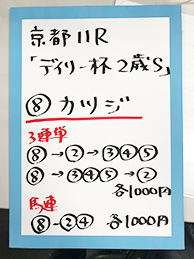 京都11R
「デイリー杯2歳S」
⑧カツジ
3連単
⑧→②→③④⑤
⑧→③④⑤→②
各1000円
馬連
⑧-②④ 各1000円